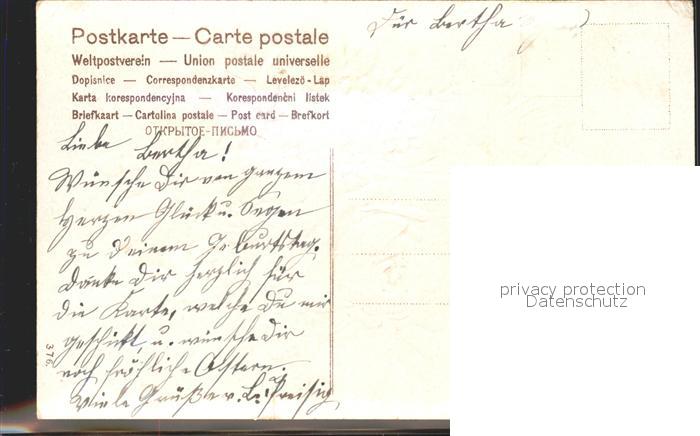 Für Bertha
Postkarte — Carte postale
Weltpostverein — Union postale universelle
Dopisnice — Correspondenzkarte — Levelező-Lap
Karta korespondencyjna — Korespondenčni listek
Briefkaart — Cartolina postale — Post card — Brefkort
ОТКРЫТОЕ-ПИСЬМО
Liebe Bertha!
Wünsche Dir von ganzem
Herzen Glück u. Segen
zu Deinem Geburtstag.
Danke Dir herzlich für
die Karte, welche Du mir
geschickt, u. wünsche Dir
noch fröhliche Ostern.
Viele Grüße v. L. Preisig
376.
privacy protection
Datenschutz